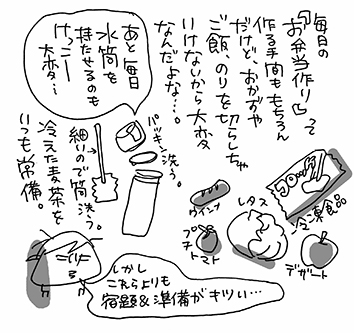 毎日の
「お弁当作り」って
作る手間ももちろん
だけど、おかずや
ご飯、のりを切らしちゃ
いけないから大変
なんだよな…。
あと毎日
水筒を
持たせるのも
けっこー
大変…
パッキン洗う。
細いので筒洗う。
冷えた麦茶を
いつも常備。
冷凍食品
ウインナ
レタス
プチ
トマト
デザート
しかし
これらよりも
宿題&準備がキツい…